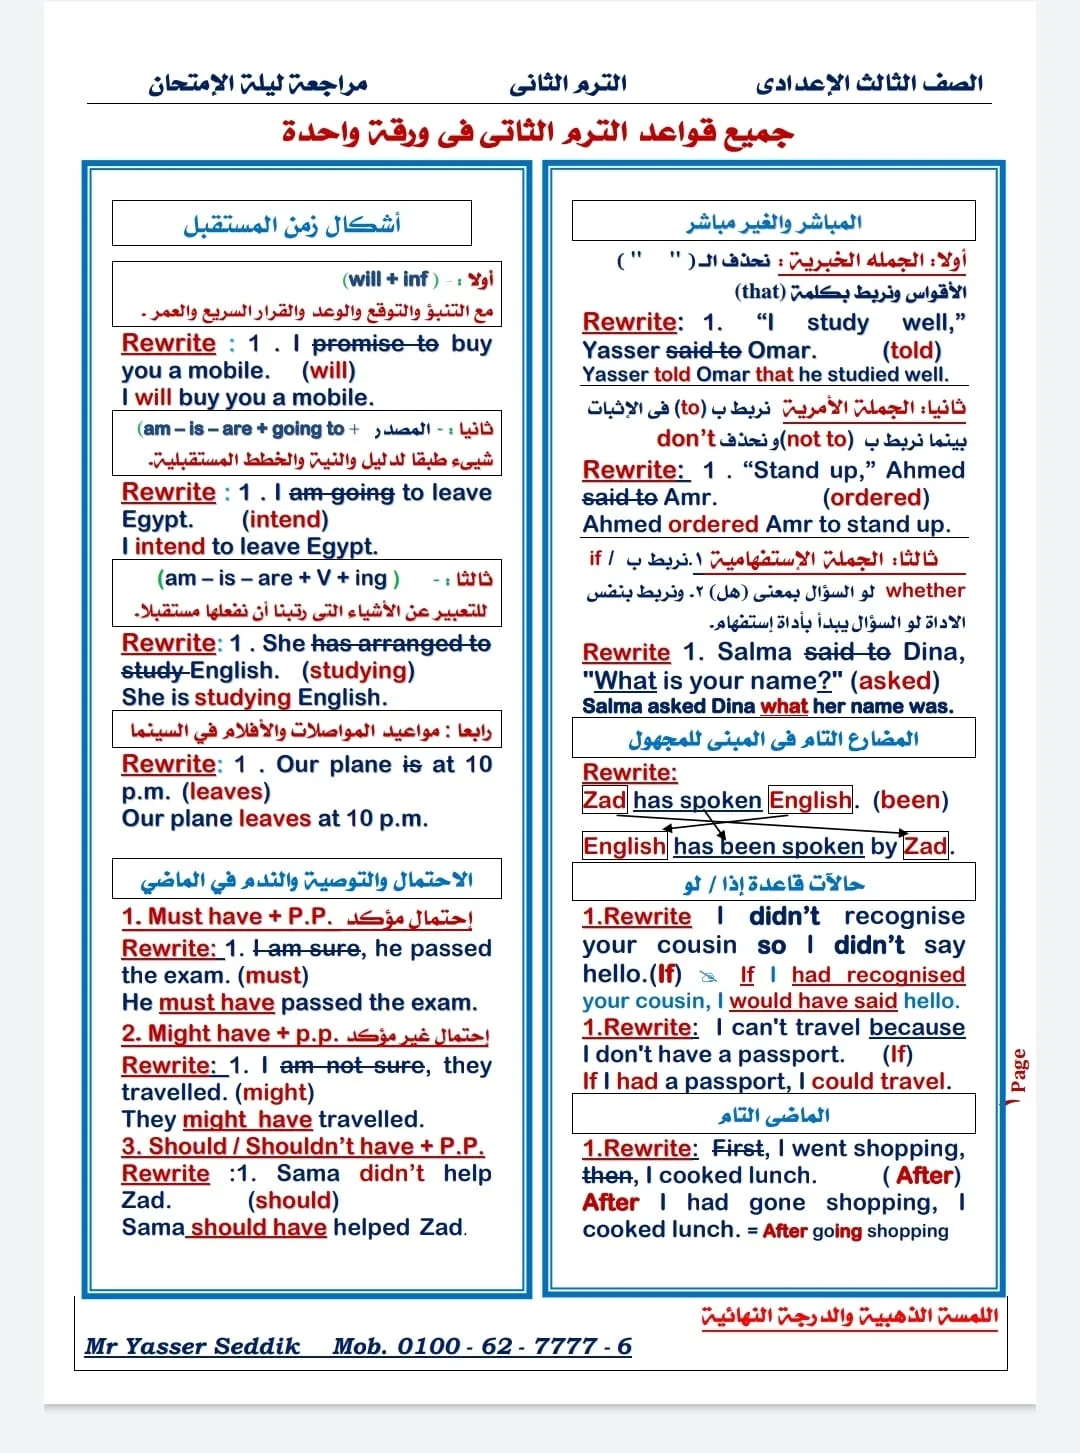 الصف الثالث الإعدادى الترم الثانى مراجعة ليلة الإمتحان
جميع قواعد الترم الثاتى فى ورقة واحدة
المباشر والغير مباشر
أولا: الجمله الخبرية : نحذف الـ( " " )
الأقواس ونربط بكلمة (that)
Rewrite: 1. “I study well,”
Yasser said to Omar. (told)
Yasser told Omar that he studied well.
ثانيا: الجملة الأمرية نربط ب (to) فى الإثبات
بينما نربط ب (not to)و نحذف don’t
Rewrite: 1 . “Stand up,” Ahmed
said to Amr. (ordered)
Ahmed ordered Amr to stand up.
ثالثا: الجملة الإستفهامية ١.نربط ب if /
whether لو السؤال بمعنى (هل) ٢- ونربط بنفس
الاداة لو السؤال يبدأ بأداة إستفهام.
Rewrite 1. Salma said to Dina,
"What is your name?" (asked)
Salma asked Dina what her name was.
المضارع التام فى المبنى للمجهول
Rewrite:
Zad has spoken English. (been)
English has been spoken by Zad.
حالآت قاعدة إذا / لو
1.Rewrite I didn’t recognise
your cousin so I didn’t say
hello.(If) If I had recognised
your cousin, I would have said hello.
1.Rewrite: I can't travel because
I don't have a passport. (If)
If I had a passport, I could travel.
الماضى التام
1.Rewrite: First, I went shopping,
then, I cooked lunch. ( After)
After I had gone shopping, I
cooked lunch. = After going shopping
أشكال زمن المستقبل
أولا : - ( will + inf)
مع التنبؤ والتوقع والوعد والقرار السريع والعمر .
Rewrite : 1 . I promise to buy
you a mobile. (will)
I will buy you a mobile.
ثانيا : - المصدر + am – is – are + going to)
شيىء طبقا لدليل والنية والخطط المستقبلية.
Rewrite : 1 . I am going to leave
Egypt. (intend)
I intend to leave Egypt.
ثالثا : - (am – is – are + V + ing )
للتعبير عن الأشياء التى رتبنا أن نفعلها مستقبلا.
Rewrite: 1 . She has arranged to
study English. (studying)
She is studying English.
رابعا : مواعيد المواصلات والأفلام في السينما
Rewrite: 1 . Our plane is at 10
p.m. (leaves)
Our plane leaves at 10 p.m.
الاحتمال والتوصية والندم في الماضي
1. Must have + P.P. إحتمال مؤكد
Rewrite: 1. I am sure, he passed
the exam. (must)
He must have passed the exam.
2. Might have + p.p. إحتمال غير مؤكد
Rewrite: 1. I am not sure, they
travelled. (might)
They might have travelled.
3. Should / Shouldn’t have + P.P.
Rewrite :1. Sama didn’t help
Zad. (should)
Sama should have helped Zad.
Page ١
اللمسة الذهبية والدرجة النهائية
Mr Yasser Seddik Mob. 0100 - 62 - 7777 - 6